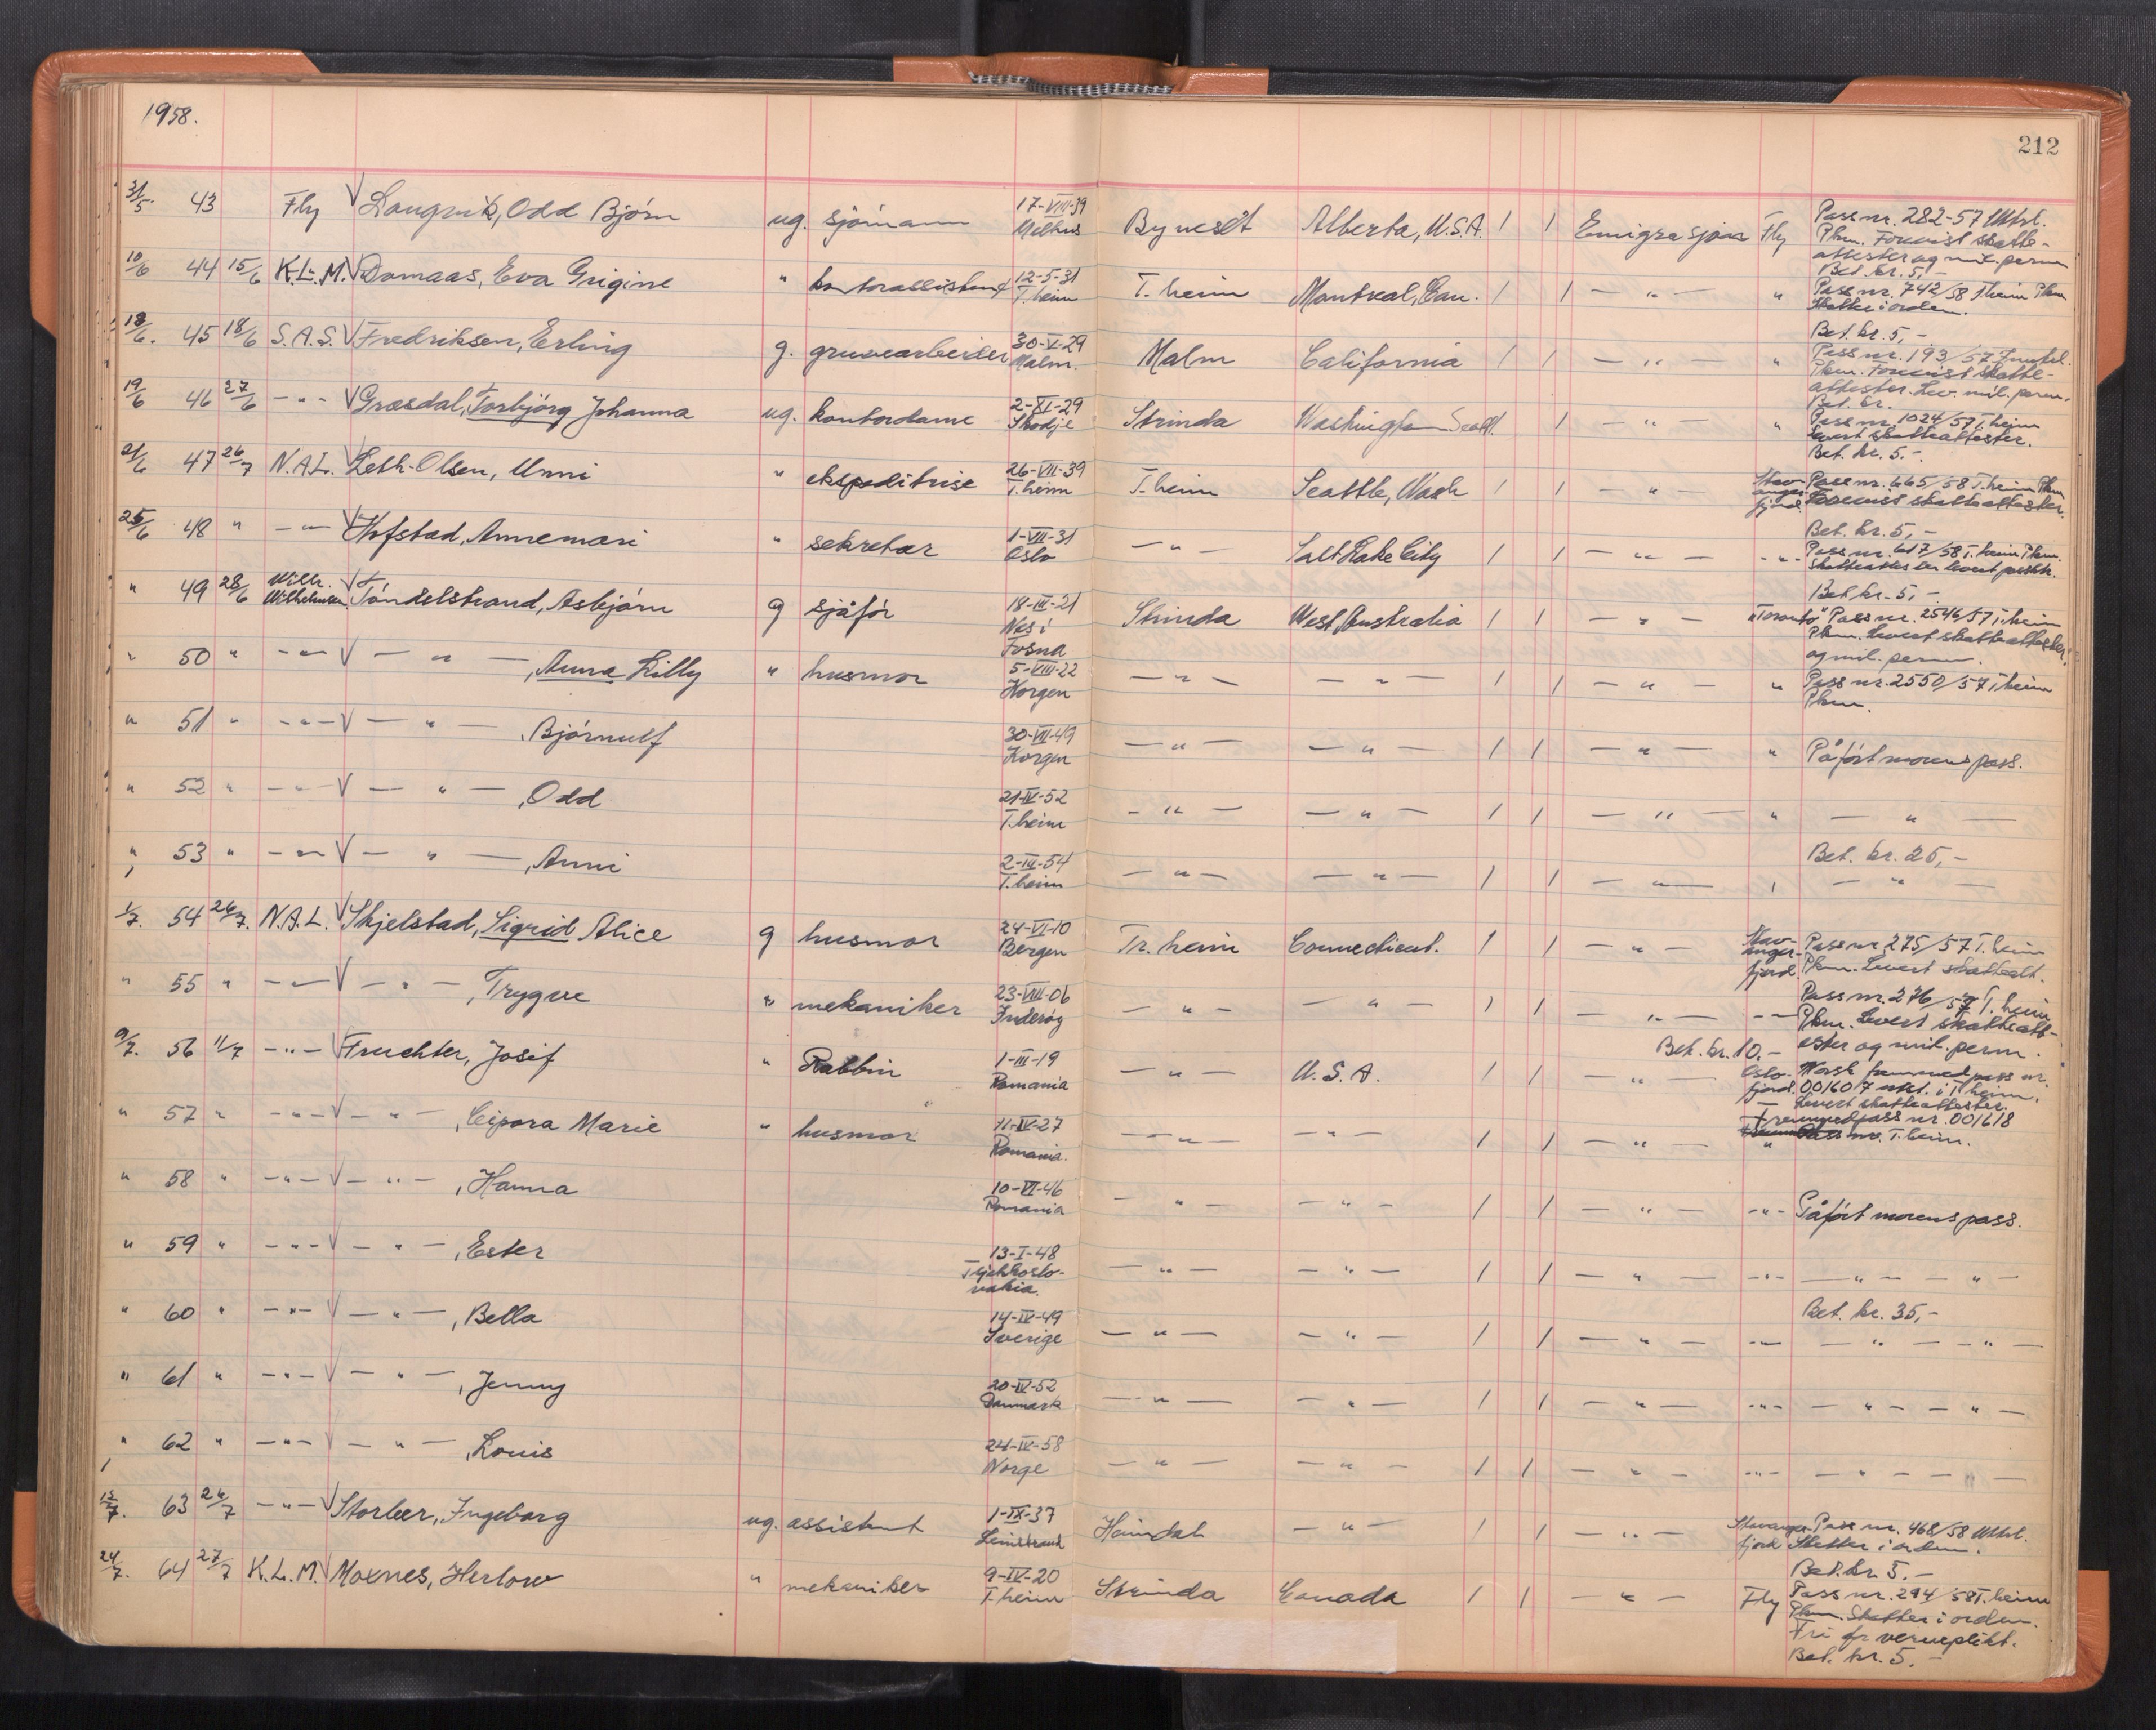 1958.
212
31/5. 43 Fly √ Langvik, Odd Bjørn ug. sjømann 17-VIII-39 Melhus Byneset Alberta, U.S.A. / / Emigrasjon Fly Pass nr. 282-57 Utstl.
Pkm. Forevist skatte-
attester og mil. perm
Bet. kr. 5,-
10/6 44 15/6 K.L.M. √ Domaas, Eva Grigine " kontorassistent 12-5-31 T.heim T.heim Montreal, Can. / / - " - " Pass nr. 742/58 T.heim Pkm
Skatter i orden.
Bet. kr. 5,-
18/6. 45 18/6 S.A.S. √ Fredriksen, Erling g. gruvearbeider 30-V-29 Malm. Malm California / / - " - " Pass nr. 193/57
Pkm. Forevist skatte-
attester. Lev. mil. perm.
Bet. kr.
19/6 46 27/6 - " - √ Græsdal, Torbjørg Johanna ug. kontordame 2-XI-29 Skodje Strinda Washington Seatt. / - " - " Pass nr. 1024/57 T.heim
Levert skatteattester.
Bet. kr. 5.-
21/6 47 26/7 N.A.L. Leth-Olsen, Unni " ekspeditrise 26-VII-39 T.heim T.heim Seattle, Wash / / - " - Stav-
anger-
fjord. Pass nr. 665/58 T.heim Pkm
Forevist skatteattester.
Bet. kr. 5,-
25/6 48 " - " - √ Hofstad, Annemari " sekretær 1-VII-31 Oslo - " - Salt Lake City / / - " - - " - Pass nr. 617/58 T.heim Pkm.
Skatteattester levert
Bet. kr. 5,-
" 49 28/6 Wilh. Wilhelmsen √ Tøndelstrand, Asbjørn g sjåfør 18-III-21 Nes i Fosna Strinda West Australia / / - " - "Toronto" Pass nr. 2546/57 T.heim
Pkm. Levert skatteattester
og mil. perm.
" 50 " - " - √ - " - , Anna Lilly " husmor 5-VIII-22 Korgen - " - - " - / / - " - " Pass nr. 2550/57 T.heim
Pkm.
" 51 " - " - √ - " - , Bjørnulf 30-VII-49 Korgen - " - - " - / / - " - " Påført morens pass.
" 52 " - " - √ - " - , Odd 21-IV-52 T.heim - " - - " - / / - " - " - " -
Bet. kr. 25,-
" 53 " - " - √ - " - , Anni 2-III-54 T.heim - " - - " - / / - " - - " -
1/7. 54 26/7. N.A.L. √ Skjelstad, Sigrid Alice g husmor 24-VI-10 Bergen Tr.heim Connecticut. / / - " - Stav-
anger-
fjord. Pass nr 275/57 T.heim
Pkm. Levert skatteatt.
" 55 " - " - √ - " - , Trygve " mekaniker 23-VIII-06 Inderøy - " - - " - / / - " - - " - Pass nr. 276/57 T.heim
Pkm. Levert skatteatt-
ester og mil. perm.
Bet. kr. 10,-
9/7. 56 11/7 - " - √ Fruchter, Josif " Rabbin 1-III-19 Romania - " - U.S.A. / / - " - Oslo-
fjord. Norsk fremmedpass nr.
001607 utst. i T.heim.
Levert skatteattester.
" 57 " - " - √ - " - , Cipora Marie " husmor 11-IV-27 Romania. - " - - " - / / - " - " Fremmedpass nr. 001618
T.heim.
" 58 " - " - √ - " - , Hanna 10-VI-46 Romania - " - - " - / / - " - - " - Påført morens pass.
" 59 " - " - √ - " - , Ester 13-I-48 Tsjekkoslo-
vakia. - " - - " - / / - " - - " - - " - - " -
Bet. kr. 35,-
" 60 " - " - √ - " - , Bella 14-IV-49 Sverige - " - - " - / / - " - - " - - " - - " -
" 61 " - " - √ - " - , Jenny 20-IV-52 Danmark - " - - " - / / - " - - " - - " - - " -
" 62 " - " - √ - " - , Louis 24-IV-58 Norge - " - - " - / / - " - - " - - " - - " -
15/7. 63 26/7 - " - √ Storler, Ingeborg ug. assistent 1-IX-37 Leinstrand Heimdal - " - / / - " - Stavanger-
fjord Pass nr. 468/58 Utstl.
Skatter i orden.
Bet. kr. 5.-
24/7. 64 27/7 K.L.M. Moxnes, Herlow " mekaniker 9-IV-20 T.heim Strinda Canada / / - " - Fly Pass nr. 294/58 T.heim
Pkm. Skatter i orden.
Fri for verneplikt.
Bet. kr. 5.-